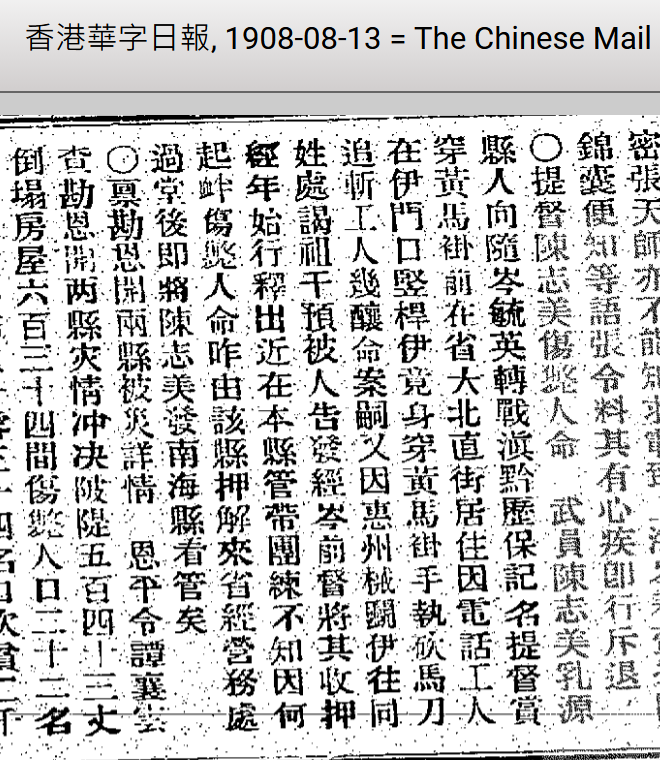 香港華字日報, 1908-08-13 = The Chinese Mail
密張天師亦不能知求電
錦囊便知等語張令料其有心疾即行斥退
〇提督陳志美傷斃人命　武員陳志美乳源
縣人向隨岑毓英轉戰滇黔歷保記名提督賞
穿黃馬褂前在省大北直街居住因電話工人
在伊門口竪桿伊竟身穿黃馬褂手執砍馬刀
追斬工人幾釀命案嗣又因惠州械鬬伊往同
姓處謁祖干預被人告發經岑前督將其收押
經年始行釋出近在本縣管帶團練不知因何
起衅傷斃人命昨由該縣押解來省經營務處
過堂後即將陳志美發南海縣看管矣
〇禀勘恩開兩縣被災詳情　恩平令譚襄雲
查勘恩開两縣灾情冲决陂隄五百四十三丈
倒塌房屋六百三十四間傷斃人口二十二名